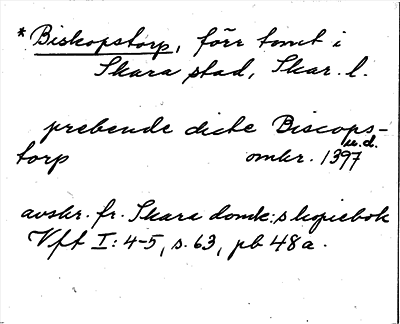 * Biskopstorp, förr tomt i
Skara stad, Skar. l.
prebende dicte Biscops-
torp omkr. 1397 u.d.
avskr. fr. Skara domk:s kopiebok
Vft I: 4-5, s. 63, pb 48a.